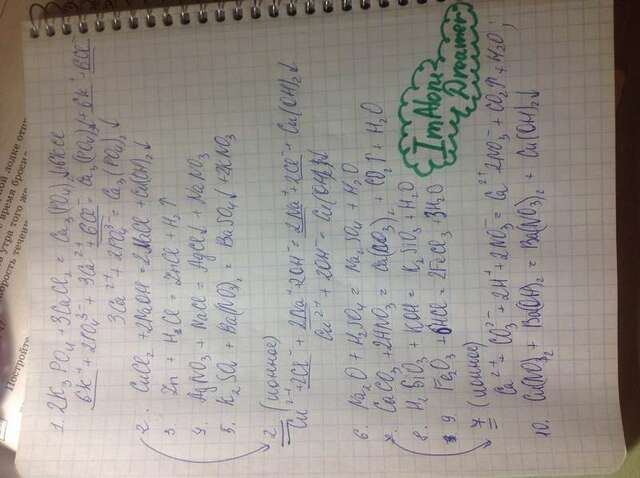 1. 2K₃PO₄ + 3CaCl₂ = Ca₃(PO₄)₂↓ + 6KCl
6K⁺ + 2PO₄³⁻ + 3Ca²⁺ + 6Cl⁻ = Ca₃(PO₄)₂↓ + 6K⁺ + 6Cl⁻
3Ca²⁺ + 2PO₄³⁻ = Ca₃(PO₄)₂↓
2. CuCl₂ + 2NaOH = 2NaCl + Cu(OH)₂↓
3. Zn + H₂Cl = ZnCl + H₂↑
4. AgNO₃ + NaCl = AgCl↓ + NaNO₃
5. K₂SO₄ + Ba(NO₃)₂ = BaSO₄↓ + 2KNO₃
2 (ионное)
Cu²⁺ + 2Cl⁻ + 2Na⁺ + 2OH⁻ = 2Na⁺ + 2Cl⁻ + Cu(OH)₂↓
Cu²⁺ + 2OH⁻ = Cu(OH)₂↓
6. Na₂O + H₂SO₄ = Na₂SO₄ + H₂O
7. CaCO₃ + 2HNO₃ = Ca(NO₃)₂ + CO₂↑ + H₂O
8. H₂SiO₃ + KOH = K₂SiO₃ + H₂O
9. Fe₂O₃ + 6HCl = 2FeCl₃ + 3H₂O
ImAloneDreamer
7 (ионное)
Ca²⁺ + CO₃²⁻ + 2H⁺ + 2NO₃⁻ = Ca²⁺ + 2NO₃⁻ + CO₂↑ + H₂O;
10. Cu(NO₃)₂ + Ba(OH)₂ = Ba(NO₃)₂ + Cu(OH)₂↓
Постройте